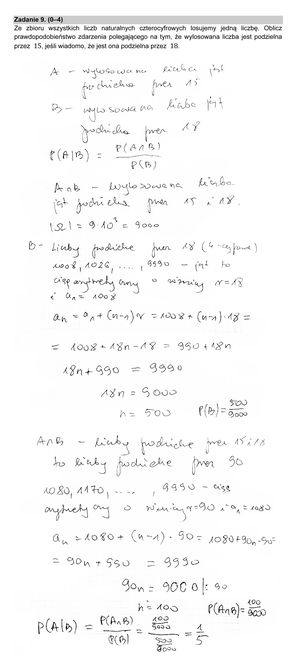 Zadanie 9. (0–4)
Ze zbioru wszystkich liczb naturalnych czterocyfrowych losujemy jedną liczbę. Oblicz
prawdopodobieństwo zdarzenia polegającego na tym, że wylosowana liczba jest podzielna
przez 15, jeśli wiadomo, że jest ona podzielna przez 18.
A – wylosowana liczba jest
podzielna przez 15
B – wylosowana liczba jest
podzielna przez 18
P(A|B) = P(A∩B) / P(B)
A∩B – wylosowana liczba
jest podzielna przez 15 i 18.
|Ω| = 9·10³ = 9000
B – liczby podzielne przez 18 (4-cyfrowe)
1008, 1026, ...., 9990 – jest to
ciąg arytmetyczny o różnicy r=18
i a₁ = 1008
aₙ = a₁ + (n−1)r = 1008 + (n−1)·18 =
= 1008 + 18n − 18 = 990 + 18n
18n + 990 = 9990
18n = 9000
n = 500 P(B) = 500/9000
A∩B – liczby podzielne przez 15 i 18
to liczby podzielne przez 90
1080, 1170, ....., 9990 – ciąg
arytmetyczny o różnicy r=90 i a₁=1080
aₙ = 1080 + (n−1)·90 = 1080+90n−90=
= 90n + 990 = 9990
90n = 9000 |: 90
n = 100 P(A∩B) = 100/9000
P(A|B) = P(A∩B)/P(B) = (100/9000)/(500/9000) = 1/5